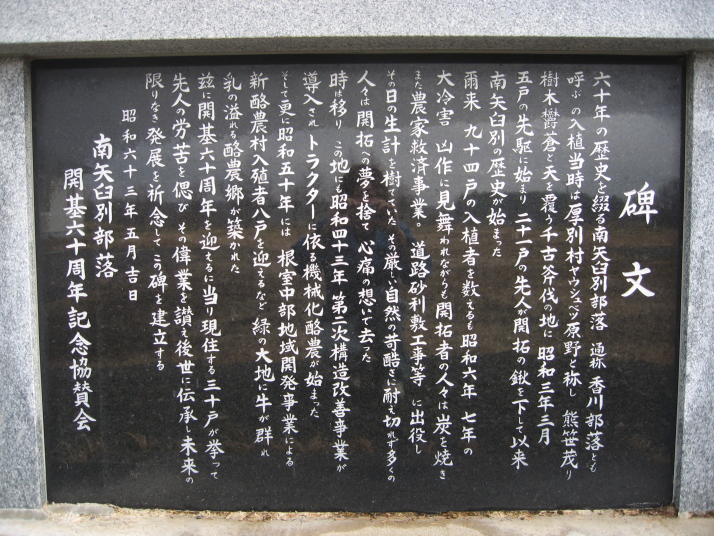 碑文
六十年の歴史を綴る南矢臼別部落 通称 香川部落とも
呼ぶ の入植当時は厚別村ヤウシュベツ原野と称し 熊笹茂り
樹木欝蒼と天を覆う千古斧伐の地に 昭和三年三月
五戸の先駆に始まり 二十一戸の先人が開拓の鍬を下して以来
南矢臼別の歴史が始まった
爾来 九十四戸の入植者を数えるも昭和六年 七年の
大冷害 凶作に見舞われながらも開拓者の人々は炭を焼き
また農家救済事業。 道路砂利敷工事等 に出役し
その日の生計を樹ていた その厳い自然の苛酷さに耐え切れず多くの
人々は開拓への夢を捨て 心痛の想いで去った
時は移り この地にも昭和四十三年 第二次構造改善事業が
導入され トラクターに依る機械化酪農が始まった
そして更に昭和五十年には 根室中部地域開発事業による
新酪農村入殖者八戸を迎えるなど緑の大地に牛が群れ
乳の溢れる酪農郷が築かれた
玆に開基六十周年を迎えるに当り現住する三十戸が挙って
先人の労苦を偲び その偉業を讃え後世に伝承し未来の
限りなき発展を祈念してこの碑を建立する
昭和六十三年五月吉日
南矢臼別部落
開基六十周年記念協賛会